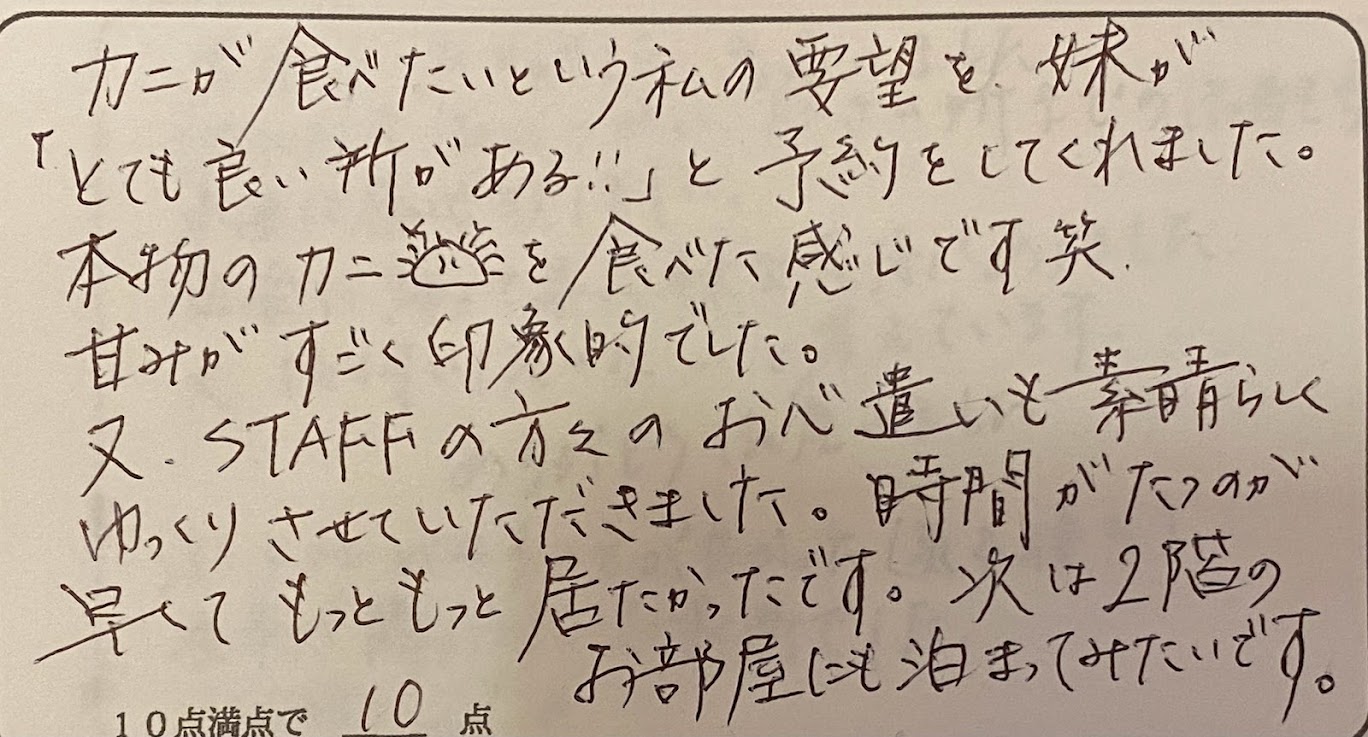 カニが食べたいという私の要望を、妹が
「とても良い所がある!!」と予約をしてくれました。
本物のカニを食べた感じです笑.
甘みがすごく印象的でした。
又、STAFFの方々のお心遣いも素晴らしく
ゆっくりさせていただきました。時間がたつのが
早くてもっともっと居たかったです。次は2階の
お部屋にも泊まってみたいです。
10点満点で 10 点